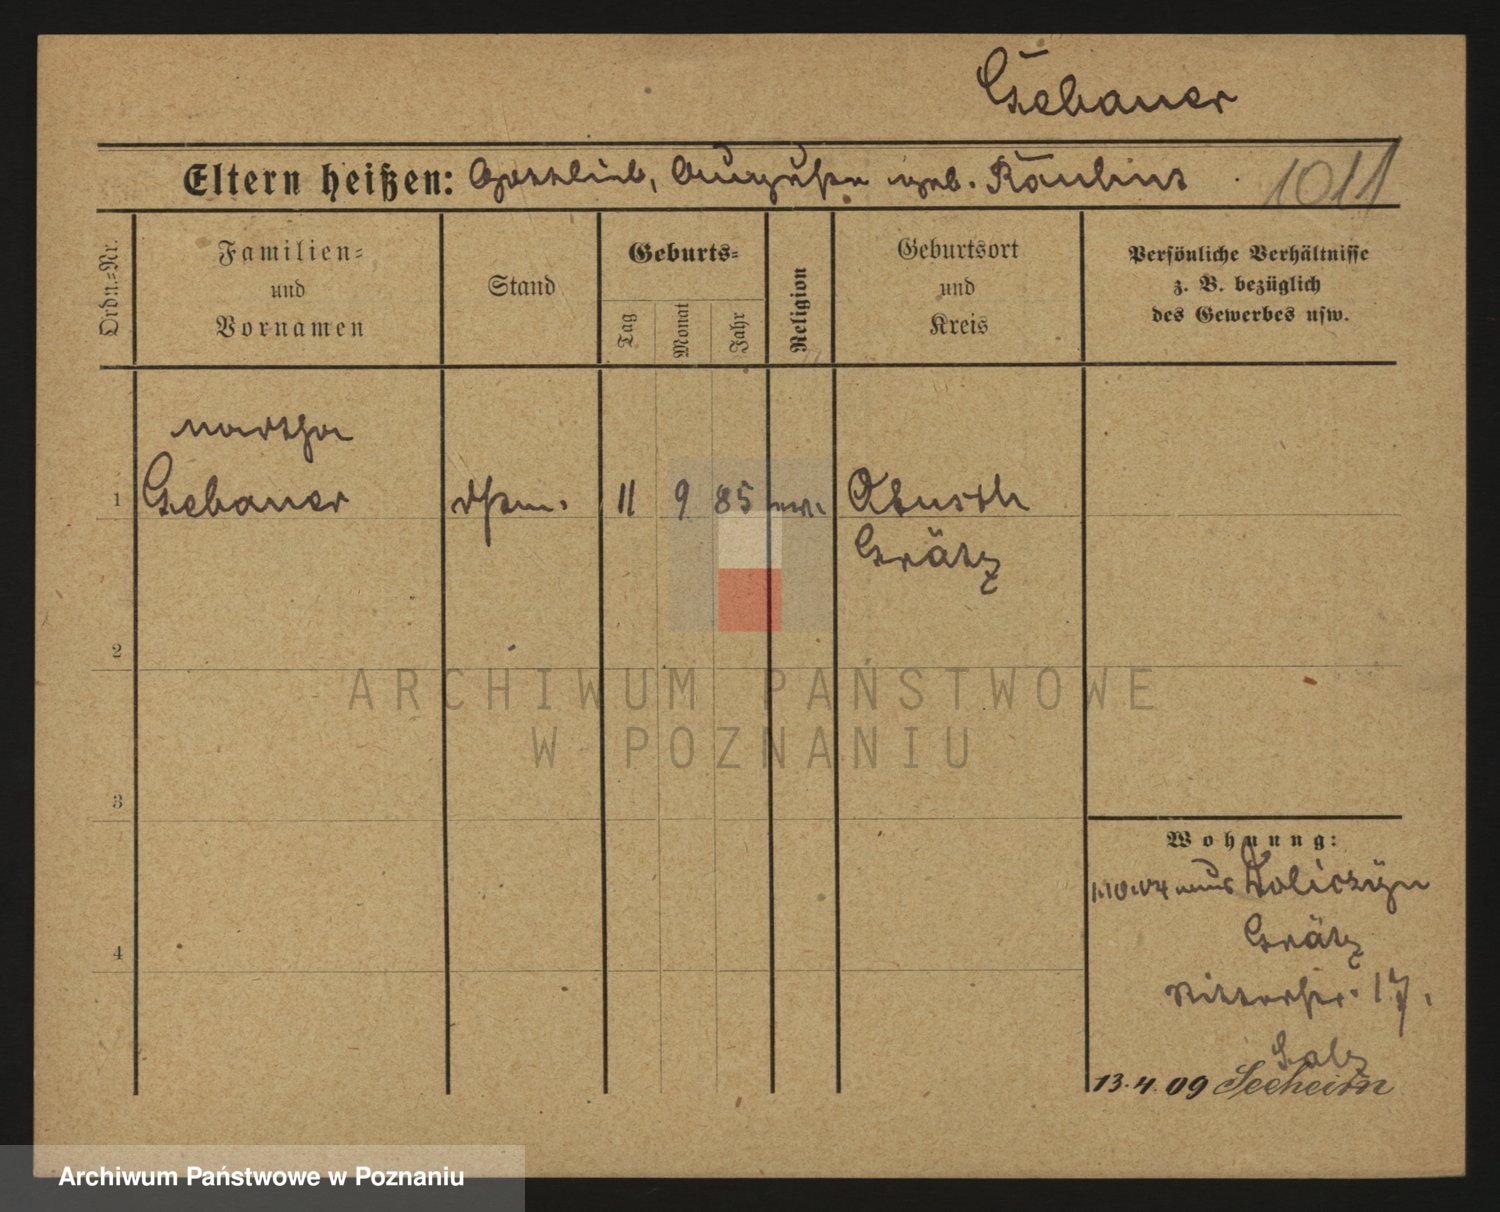 Gebauer
Eltern heißen: Gottlieb, Auguste geb.
1011
Ordn.=Nr.
Familien=
und
Vornamen
Stand
Geburts=
Tag
Monat
Jahr
Religion
Geburtsort
und
Kreis
Persönliche Verhältnisse
z. B. bezüglich
des Gewerbes usw.
Martha
1 Gebauer 11 9 85 ev.
Grätz
2
3
4
Wohnung:
1.10.04 aus
Grätz
Ritterstr. 17.
13.4.09 Seeheim
ARCHIWUM PAŃSTWOWE
W POZNANIU
Archiwum Państwowe w Poznaniu